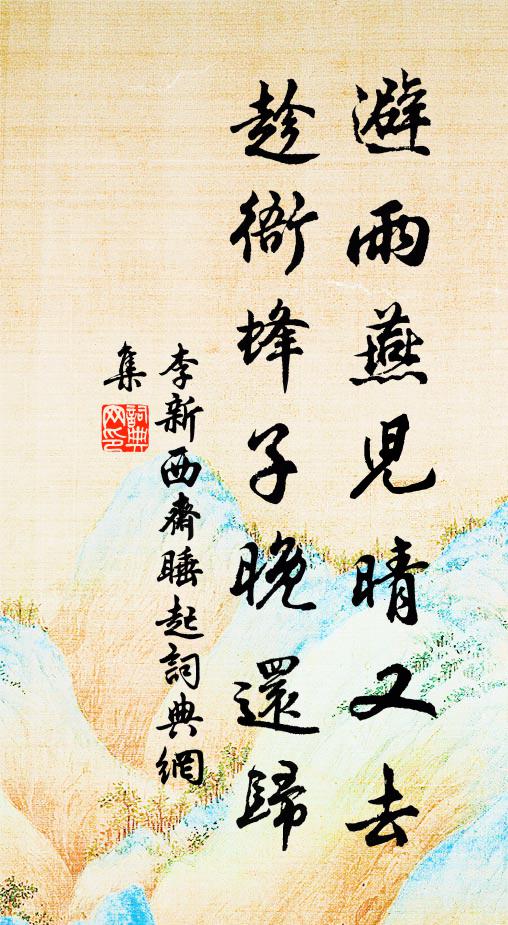 避雨燕兒晴又去
趁衙蜂子晚還歸
李新西齋睡起詞典網
集
詞典網印